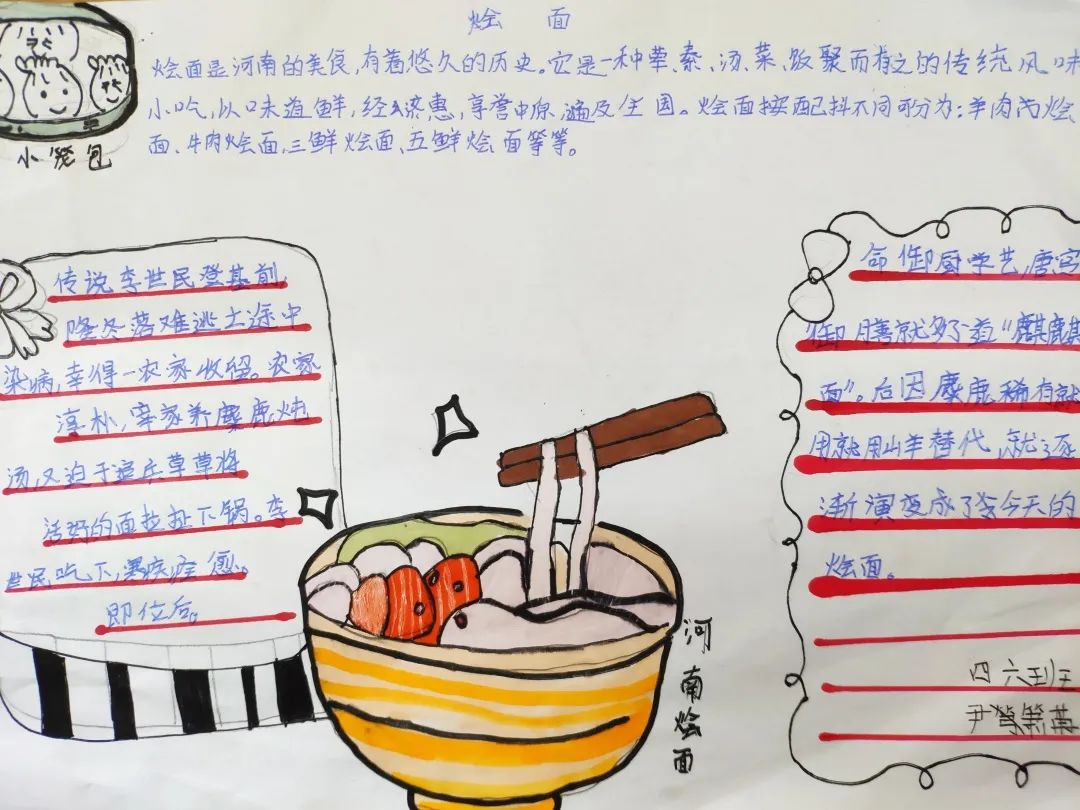 烩面
烩面是河南的美食,有着悠久的历史。它是一种荤、素、汤、菜、饭聚而有之的传统风味
小吃,以味道鲜,经济惠,享誉中原,遍及全国。烩面按配料不同可分为:羊肉烩
面、牛肉烩面,三鲜烩面、五鲜烩面等等。
小笼包
传说李世民登基前,
隆冬落难逃亡途中
染病,幸得一农家收留。农家
淳朴,宰家养麋鹿炖
汤,又迫于追兵草草将
活好的面拉扯下锅。李
世民吃下,寒疾痊愈。
即位后。
命御厨学艺,唐宫
御膳就多了道“麒麟
面”。后因麋鹿稀有就
用就用山羊替代,就逐
渐演变成了今天的
烩面。
四六班
尹
河南烩面